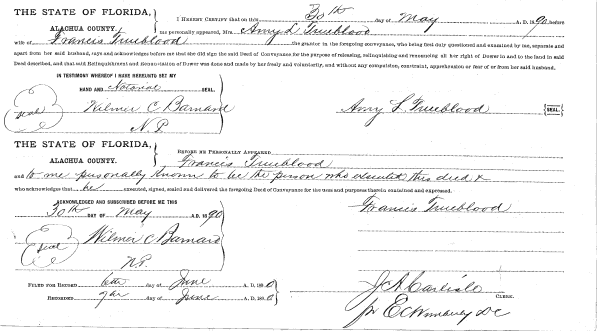 THE STATE OF FLORIDA,
ALACHUA COUNTY.
I HEREBY CERTIFY that on this 30th day of May A. D. 1890 before
me personally appeared, Mrs. Amy L Trueblood
wife of Francis Trueblood the grantor in the foregoing conveyance, who being first duly questioned and examined by me, separate and
apart from her said husband, says and acknowledges before me that she did sign the said Deed of Conveyance for the purpose of releasing, relinquishing and renouncing all her right of Dower in and to the land in said
Deed described, and that said Relinquishment and Renunciation of Dower was done and made by her freely and voluntarily, and without any compulsion, constraint, apprehension or fear of or from her said husband.
IN TESTIMONY WHEREOF I HAVE HEREUNTO SET MY
HAND AND Notarial SEAL.
Seal
Wilmer C Barnard
N.P
Amy L Trueblood SEAL.
THE STATE OF FLORIDA,
ALACHUA COUNTY.
BEFORE ME PERSONALLY APPEARED
Francis Trueblood
and to me personally known to be the person who executed this deed &
who acknowledges that he executed, signed, sealed and delivered the foregoing Deed of Conveyance for the uses and purposes therein contained and expressed.
ACKNOWLEDGED AND SUBSCRIBED BEFORE ME THIS
30th DAY OF May A.D. 1890
Francis Trueblood
Seal
Wilmer C Barnard
N.P.
FILED FOR RECORD 6th day of June A. D. 1890
RECORDED 7th day of June A. D. 1890
J A Carlisle
CLERK.
pr E C Wimberly DC